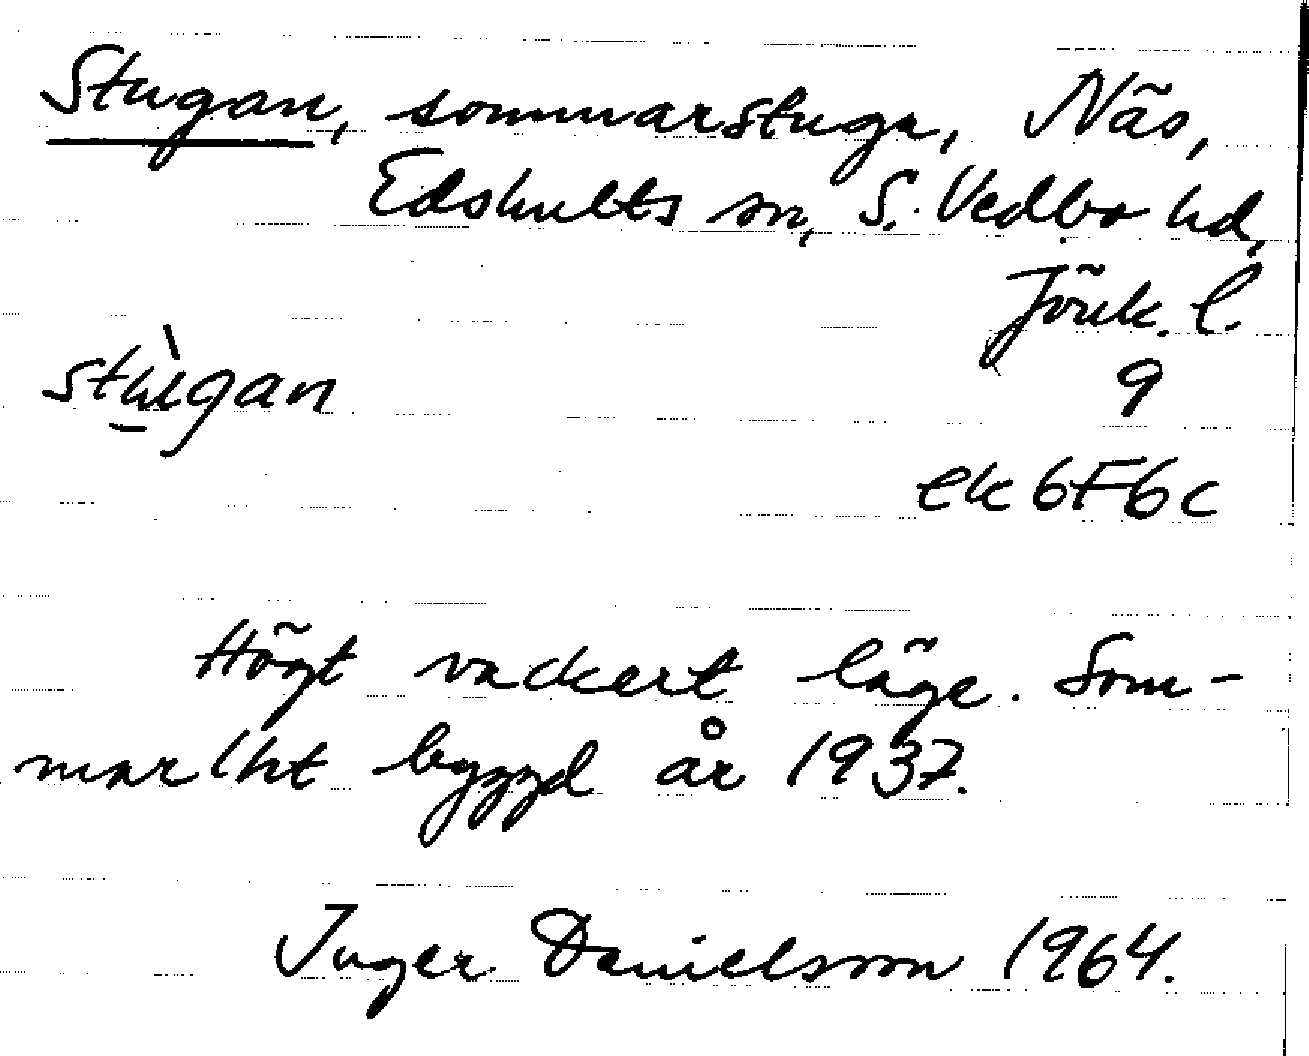 Stugan, sommarstuga, Näs,
Edshults sn, S. Vedbo hd,
Jönk. l.
stù̲gan
9
ek 6F6c
Högt vackert läge. Som-
marlht byggd år 1937.
Inger Danielsson 1964.